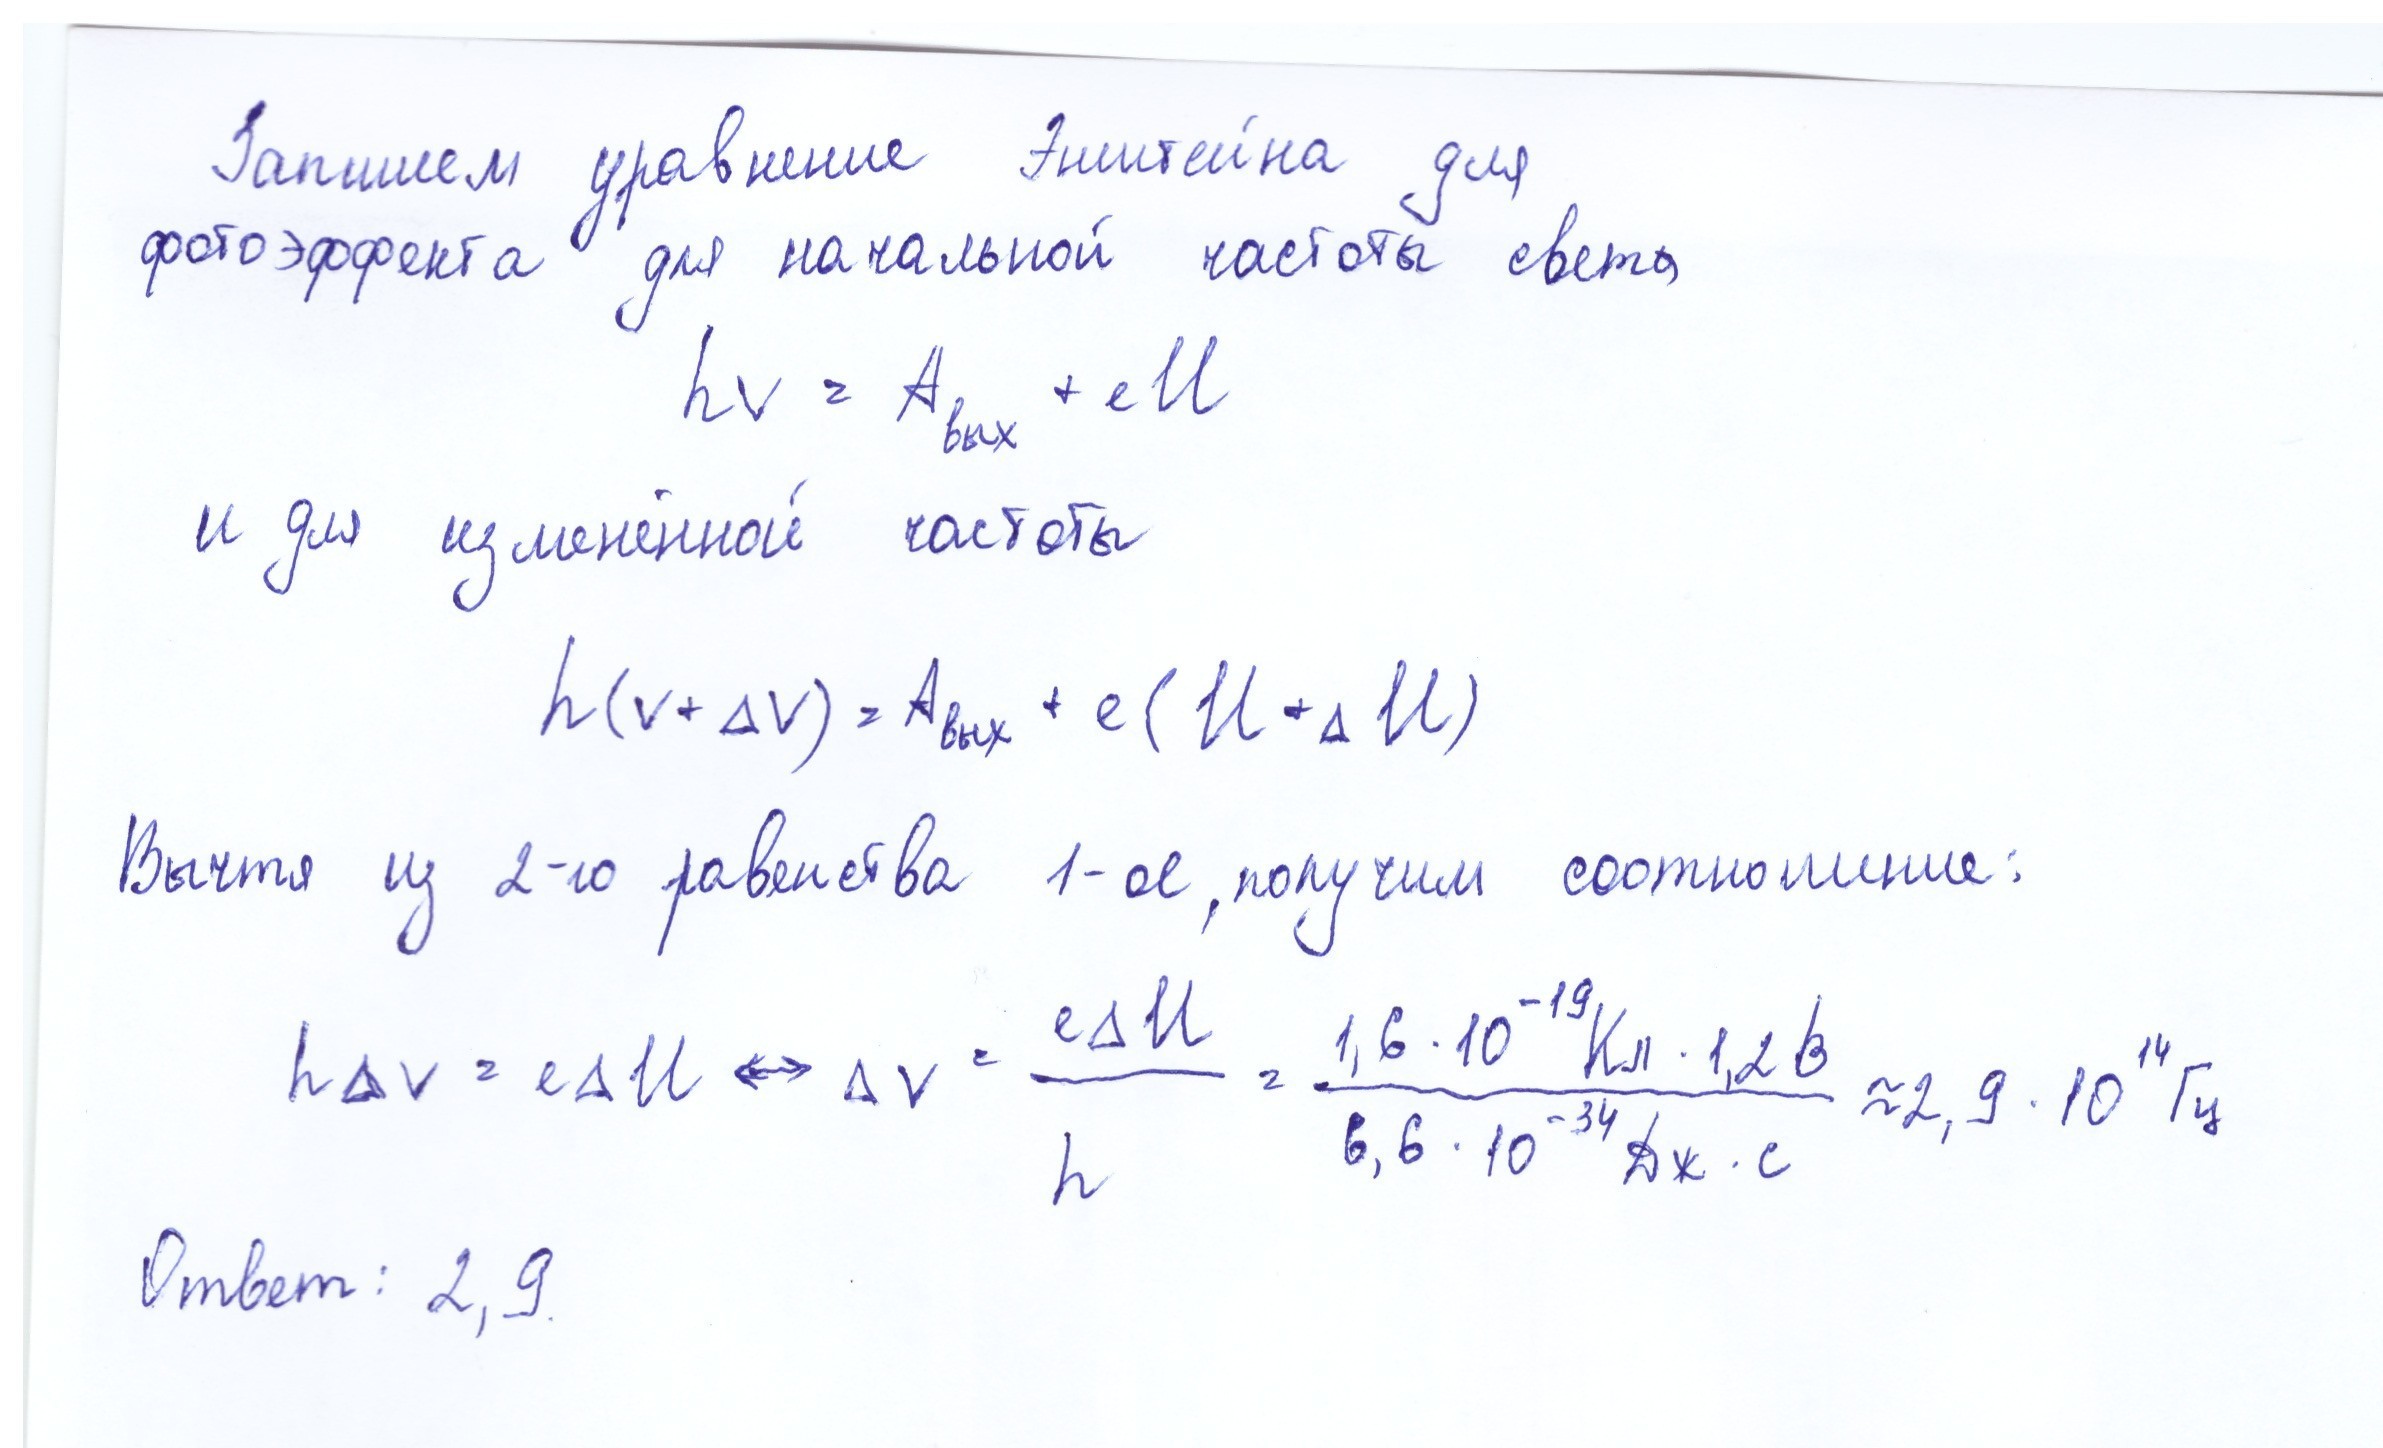 Запишем уравнение Энштейна для
фотоэффекта для начальной частоты света
hν = Aвых + eU
и для изменённой частоты
h(ν + Δν) = Aвых + e(U + ΔU)
Вычтя из 2-го равенства 1-ое, получим соотношение:
hΔν = eΔU ↔ Δν = eΔU / h = 1,6 · 10⁻¹⁹ Кл · 1,2 В / 6,6 · 10⁻³⁴ Дж · с ≈ 2,9 · 10¹⁴ Гц
Ответ: 2,9.